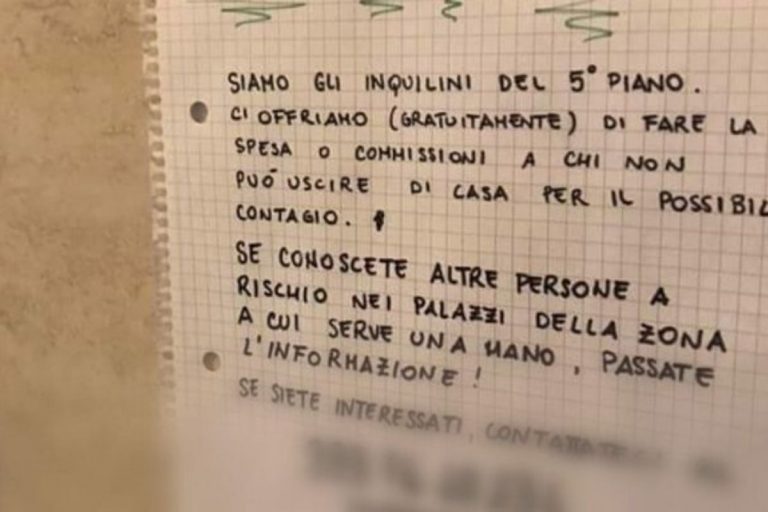 SIAMO GLI INQUILINI DEL 5° PIANO.
CI OFFRIAMO (GRATUITAMENTE) DI FARE LA
SPESA O COMMISSIONI A CHI NON
PUÓ USCIRE DI CASA PER IL POSSIBIL
CONTAGIO.
SE CONOSCETE ALTRE PERSONE A
RISCHIO NEI PALAZZI DELLA ZONA
A CUI SERVE UNA MANO, PASSATE
L'INFORMAZIONE!
SE SIETE INTERESSATI,